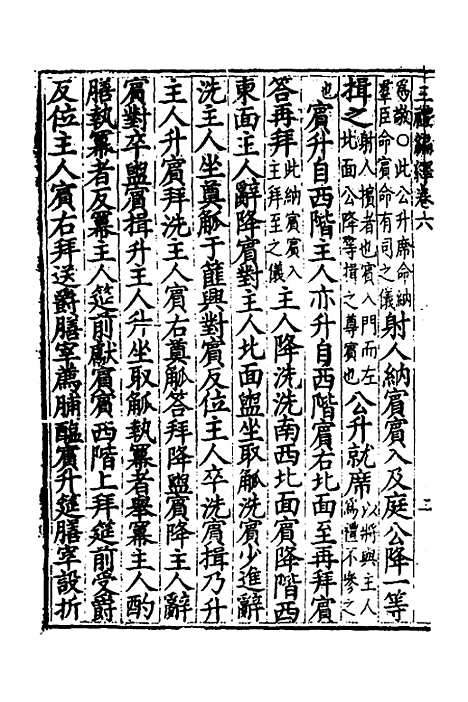 三禮編繹卷六 二
為敬○此公升席命納羣臣命賓命有司之儀射人納賓賓入及庭公降一等
揖之射人擯者也賓入門而左北面公降等揖之尊賓也公升就席以將與主人爲禮不參之
也賓升自西階主人亦升自西階賓右北面至再拜賓
答再拜此納賓賓入主人拜至之儀主人降洗洗南西北面賓降階西
東面主人辭降賓對主人北面盥坐取觚洗賓少進辭
洗主人坐奠觚于篚興對賓反位主人卒洗賓揖乃升
主人升賓拜洗主人賓右奠觚答拜降盥賓降主人辭
賓對卒盥賓揖升主人升坐取觚執冪者舉冪主人酌
膳執冪者反冪主人筵前獻賓賓西階上拜筵前受爵
反位主人賓右拜送爵膳宰薦脯醢賓升筵膳宰設折